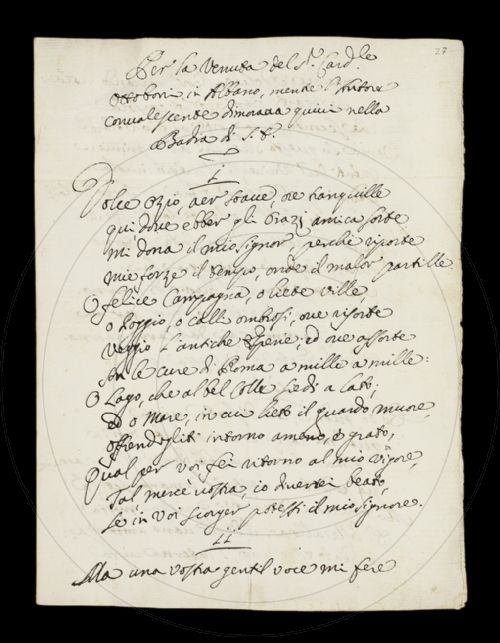 27
Per la Venuta del S.r Card.le
Ottoboni in Albano, mentre l'Autore
convalescente dimorava quivi nella
Badia di S. P.
i
Dolce ozio, aer soave, ore tranquille
qui, dove ebber gli Orazi amica sorte
mi dona il mio signor, perchè riporte
mie forze il tempo, onde il malor partille.
O felice Campagna, o liete ville,
o Poggio, o calli ombrosi, ove risorte
Veggio l'antiche spene; ed ove assorte
son le cure di Roma a mille a mille:
O Lago, che al bel Colle siedi a lato;
ed o Mare, in cui lieto il guardo muore,
offrendogliti intorno ameno, e grato,
Qual per voi fei ritorno al mio vigore,
Tal mercè vostra, io diverrei beato,
se in voi scorger potessi il mio signore.
ii
Ma una vostra gentil voce mi fere